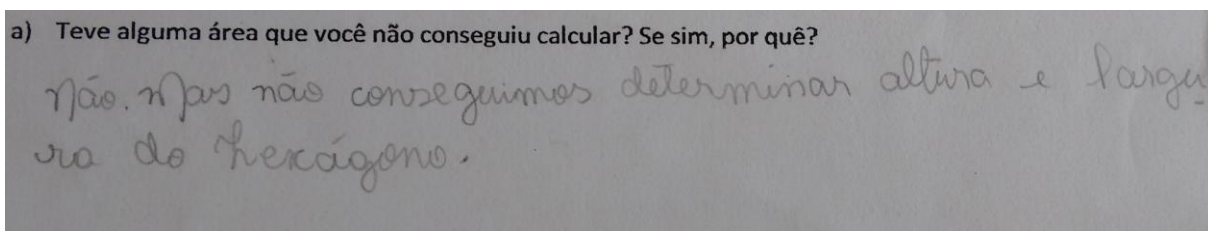 a) Teve alguma área que você não conseguiu calcular? Se sim, por quê?
Não. Mas não conseguimos determinar altura e largu
ra do hexágono.